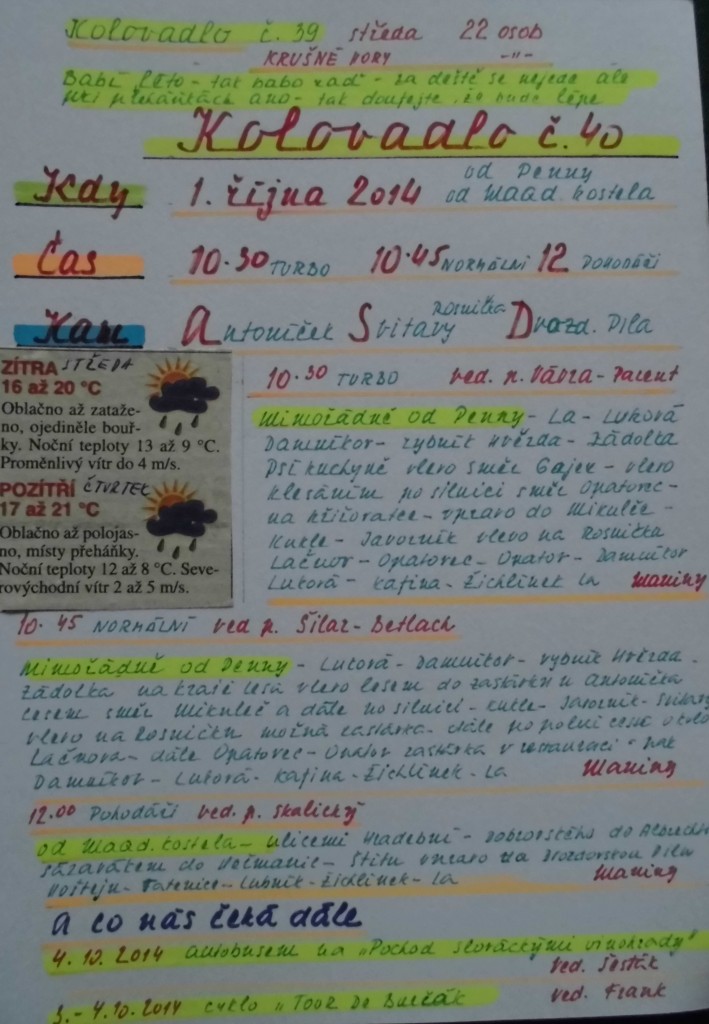 Kolovadlo č. 39 středa 22 osob
KRUŠNÉ HORY -"-
Babí léto - tak babo raď - za deště se nejede ale
při přeháňkách ano - tak doufejte, že bude lépe
Kolovadlo č. 40
Kdy 1. října 2014 od Penny
od Magd. kostela
Čas 10.30 TURBO 10.45 NORMÁLNÍ 12 POHODÁŘI
Kam Antoníček Svitavy Rosnička Drozd. Pila
ZÍTRA STŘEDA
16 až 20 °C
Oblačno až zataže-
no, ojediněle bouř-
ky. Noční teploty 13 až 9 °C.
Proměnlivý vítr do 4 m/s.
POZÍTŘÍ ČTVRTEK
17 až 21 °C
Oblačno až polojas-
no, místy přeháňky.
Noční teploty 12 až 8 °C. Seve-
rovýchodní vítr 2 až 5 m/s.
10.30 TURBO ved. p. Vávra -
Mimořádně od Penny - La - Luková
Damníkov - rybník Hvězda - Zádolka
Psí kuchyně vlevo směr Gajer - vlevo
klesáním po silnici směr Opatovec -
na křižovatce - vpravo do Mikulče -
Kukle - Javorník vlevo na Rosnička
Lačnov - Opatovec - Opatov - Damníkov
Luková - Rafina - Žichlínek La Maniny
10.45 NORMÁLNÍ ved. p. Šilar - Betlach
Mimořádně od Penny - Luková - Damníkov - rybník Hvězda -
Zádolka na kraji lesa vlevo lesem do zastávky u Antoníčka
lesem směr Mikuleč a dále po silnici - Kukle - Javorník - Svitavy
vlevo na Rosničku možná zastávka - dále po polní cestě okolo
Lačnova - dále Opatovec - Opatov zastávka v restauraci - pak
Damníkov - Luková - Rafina - Žichlínek - La Maniny
12.00 Pohodáři ved. p. Skalický
od Magd. kostela - ulicemi Hradební - Dobrovského do Albrechtic
Sázavátem do Heřmanic - Štítů vpravo na Drozdovskou Pilu
Hoštejn - Tatenice - Lubník - Žichlínek - La Maniny
A co nás čeká dále
4. 10. 2014 autobusem na "Pochod slováckými vinohrady"
ved. Šesták
3. - 4.10.2014 cyklo "Tour De Burčák ved. Frank